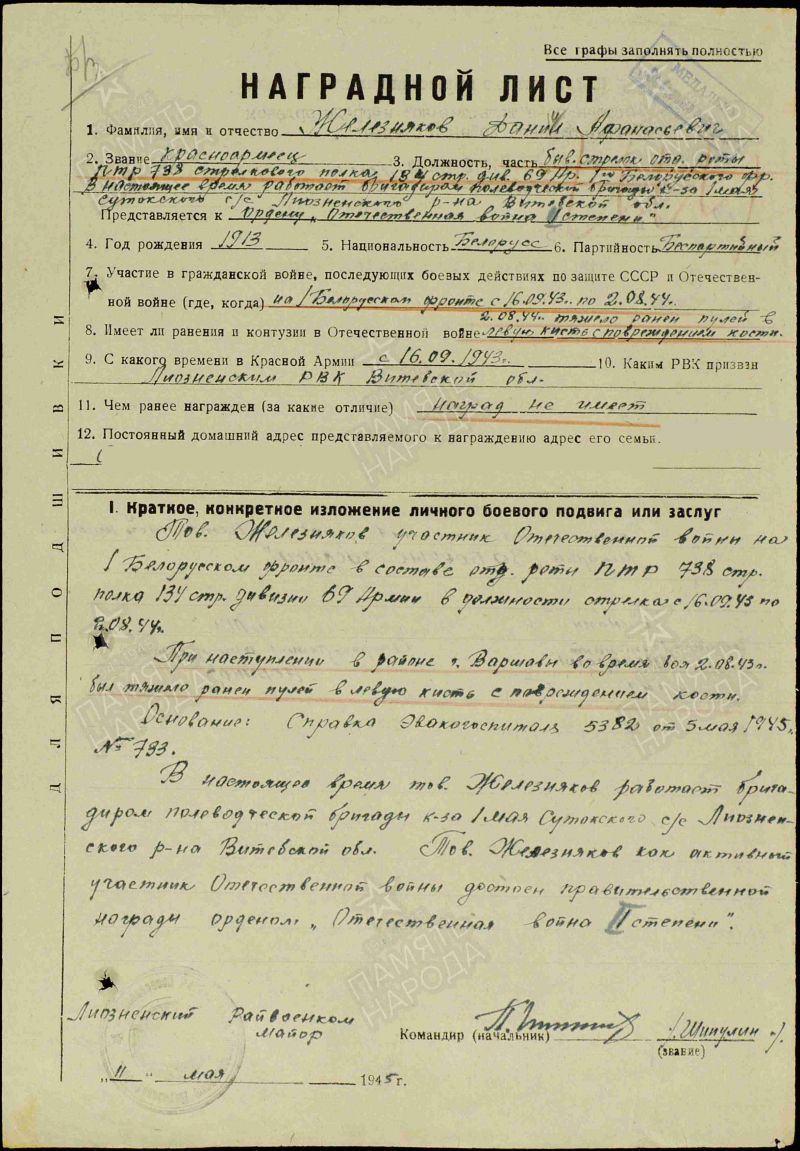 Все графы заполнять полностью
НАГРАДНОЙ ЛИСТ
1. Фамилия, имя и отчество Железняков Данил Афанасьевич
2. Звание Красноармеец 3. Должность, часть быв. стрелк отд. роты
ПТР 738 стрелкового полка, 134 стр. див. 69 Ар. 1го Белорусского фр.
В настоящее время работает бригадиром полеводческой бригады к-за 1 мая
Сутокского с/с Лиозненского р-на Витебской обл.
Представляется к Ордену „Отечественная война II степени"
4. Год рождения 1913 5. Национальность Белорусс 6. Партийность Беспартийный
7. Участие в гражданской войне, последующих боевых действиях по защите СССР и Отечествен-
ной войне (где, когда) на 1 Белорусском фронте с 16.09.43г. по 2.08.44г.
2.08.44г. тяжело ранен пулей в
8. Имеет ли ранения и контузии в Отечественной войне левую кисть с повреждением кости.
9. С какого времени в Красной Армии с 16.09.1943г. 10. Каким РВК призван
Лиозненским РВК Витебской обл.
11. Чем ранее награжден (за какие отличие) наград не имеет
12. Постоянный домашний адрес представляемого к награждению адрес его семьи.
I. Краткое, конкретное изложение личного боевого подвига или заслуг
Тов. Железняков участник Отечественной войны на
1 Белорусском фронте в составе отд. роты ПТР 738 стр.
полка 134 стр. дивизии 69 Армии в должности стрелка с 16.09.43 по
2.08.44г.
При наступлении в районе г. Варшавы во время боя 2.08.43г.
был тяжело ранен пулей в левую кисть с повреждением кости.
Основание: Справка Эвакогоспиталя 5382 от 5 мая 1945г.
№ 733.
В настоящее время тов. Железняков работает брига-
диром полеводческой бригады к-за 1 мая Сутокского с/с Лиознен-
ского р-на Витебской обл. Тов. Железняков как активный
участник Отечественной войны достоен правительственной
награды орденом „Отечественная война II степени".
Лиозненский Райвоенком
майор
Командир (начальник) /Шипулин/
(звание)
„11" мая 1945 г.
ДЛЯ ПОДШИВКИ
ПАМЯТЬ
НАРОДА